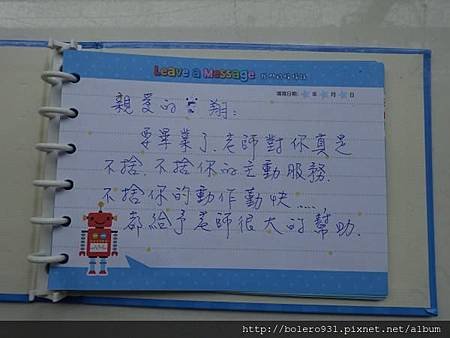 Leave a Message
填寫日期: 年 月 日
親愛的 翔:
要畢業了.老師對你真是
不捨.不捨你的主動服務.
不捨你的動作勤快……,
都給予老師很大的幫助.
http://bolero931.pixnet.net/album